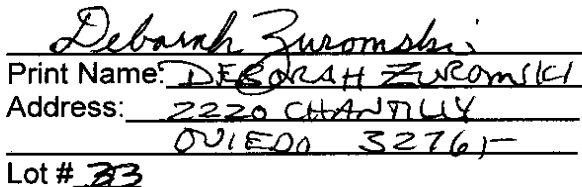 Deborah Zuromski
Print Name: DEBORAH ZUROMSKI
Address: 2220 CHANTILLY
OVIEDO 32765
Lot # 33